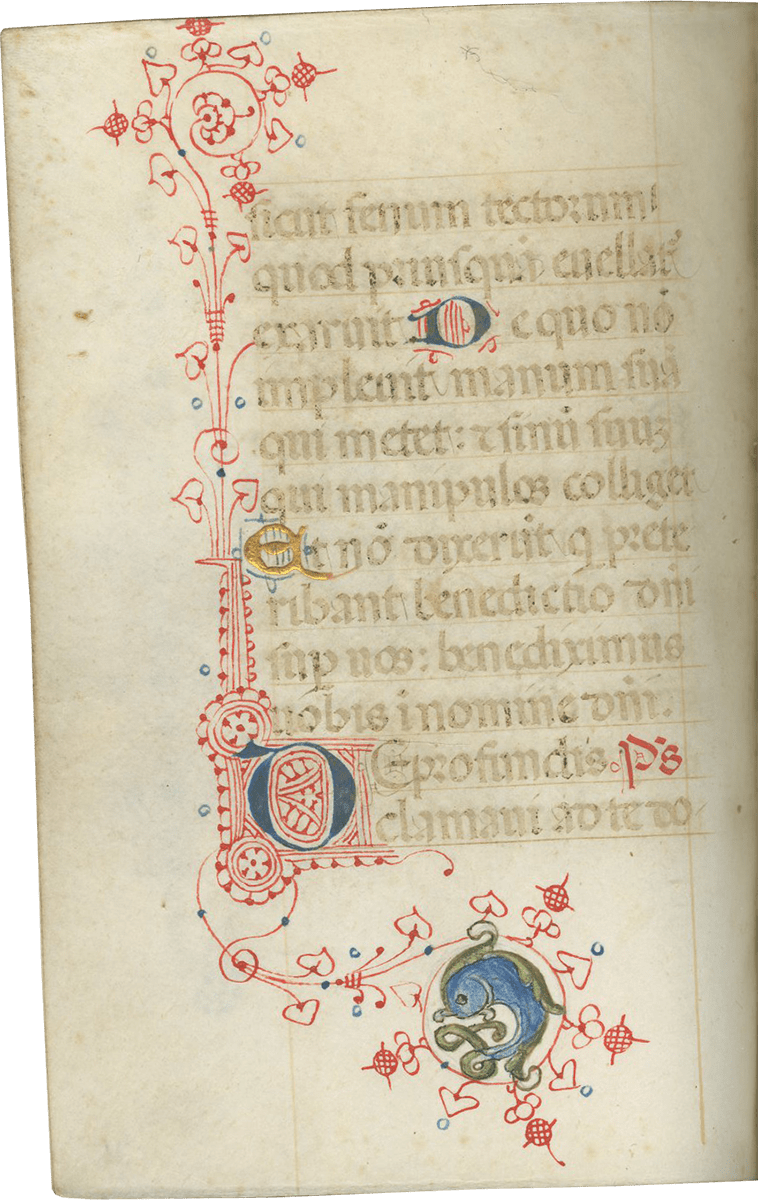 sicut fenum tectorum
quod priusquā euellat᷑
exaruit De quo nō
impleuit manum suā
qui metet: ⁊ sinū suuꝫ
qui manipulos colliget
Et nō dixerūt q̄ prete
ribant benedictio dn̄i
suꝑ uos: benediximus
uobis i nomine dn̄i.
DE profundis Ps
clamaui ad te do